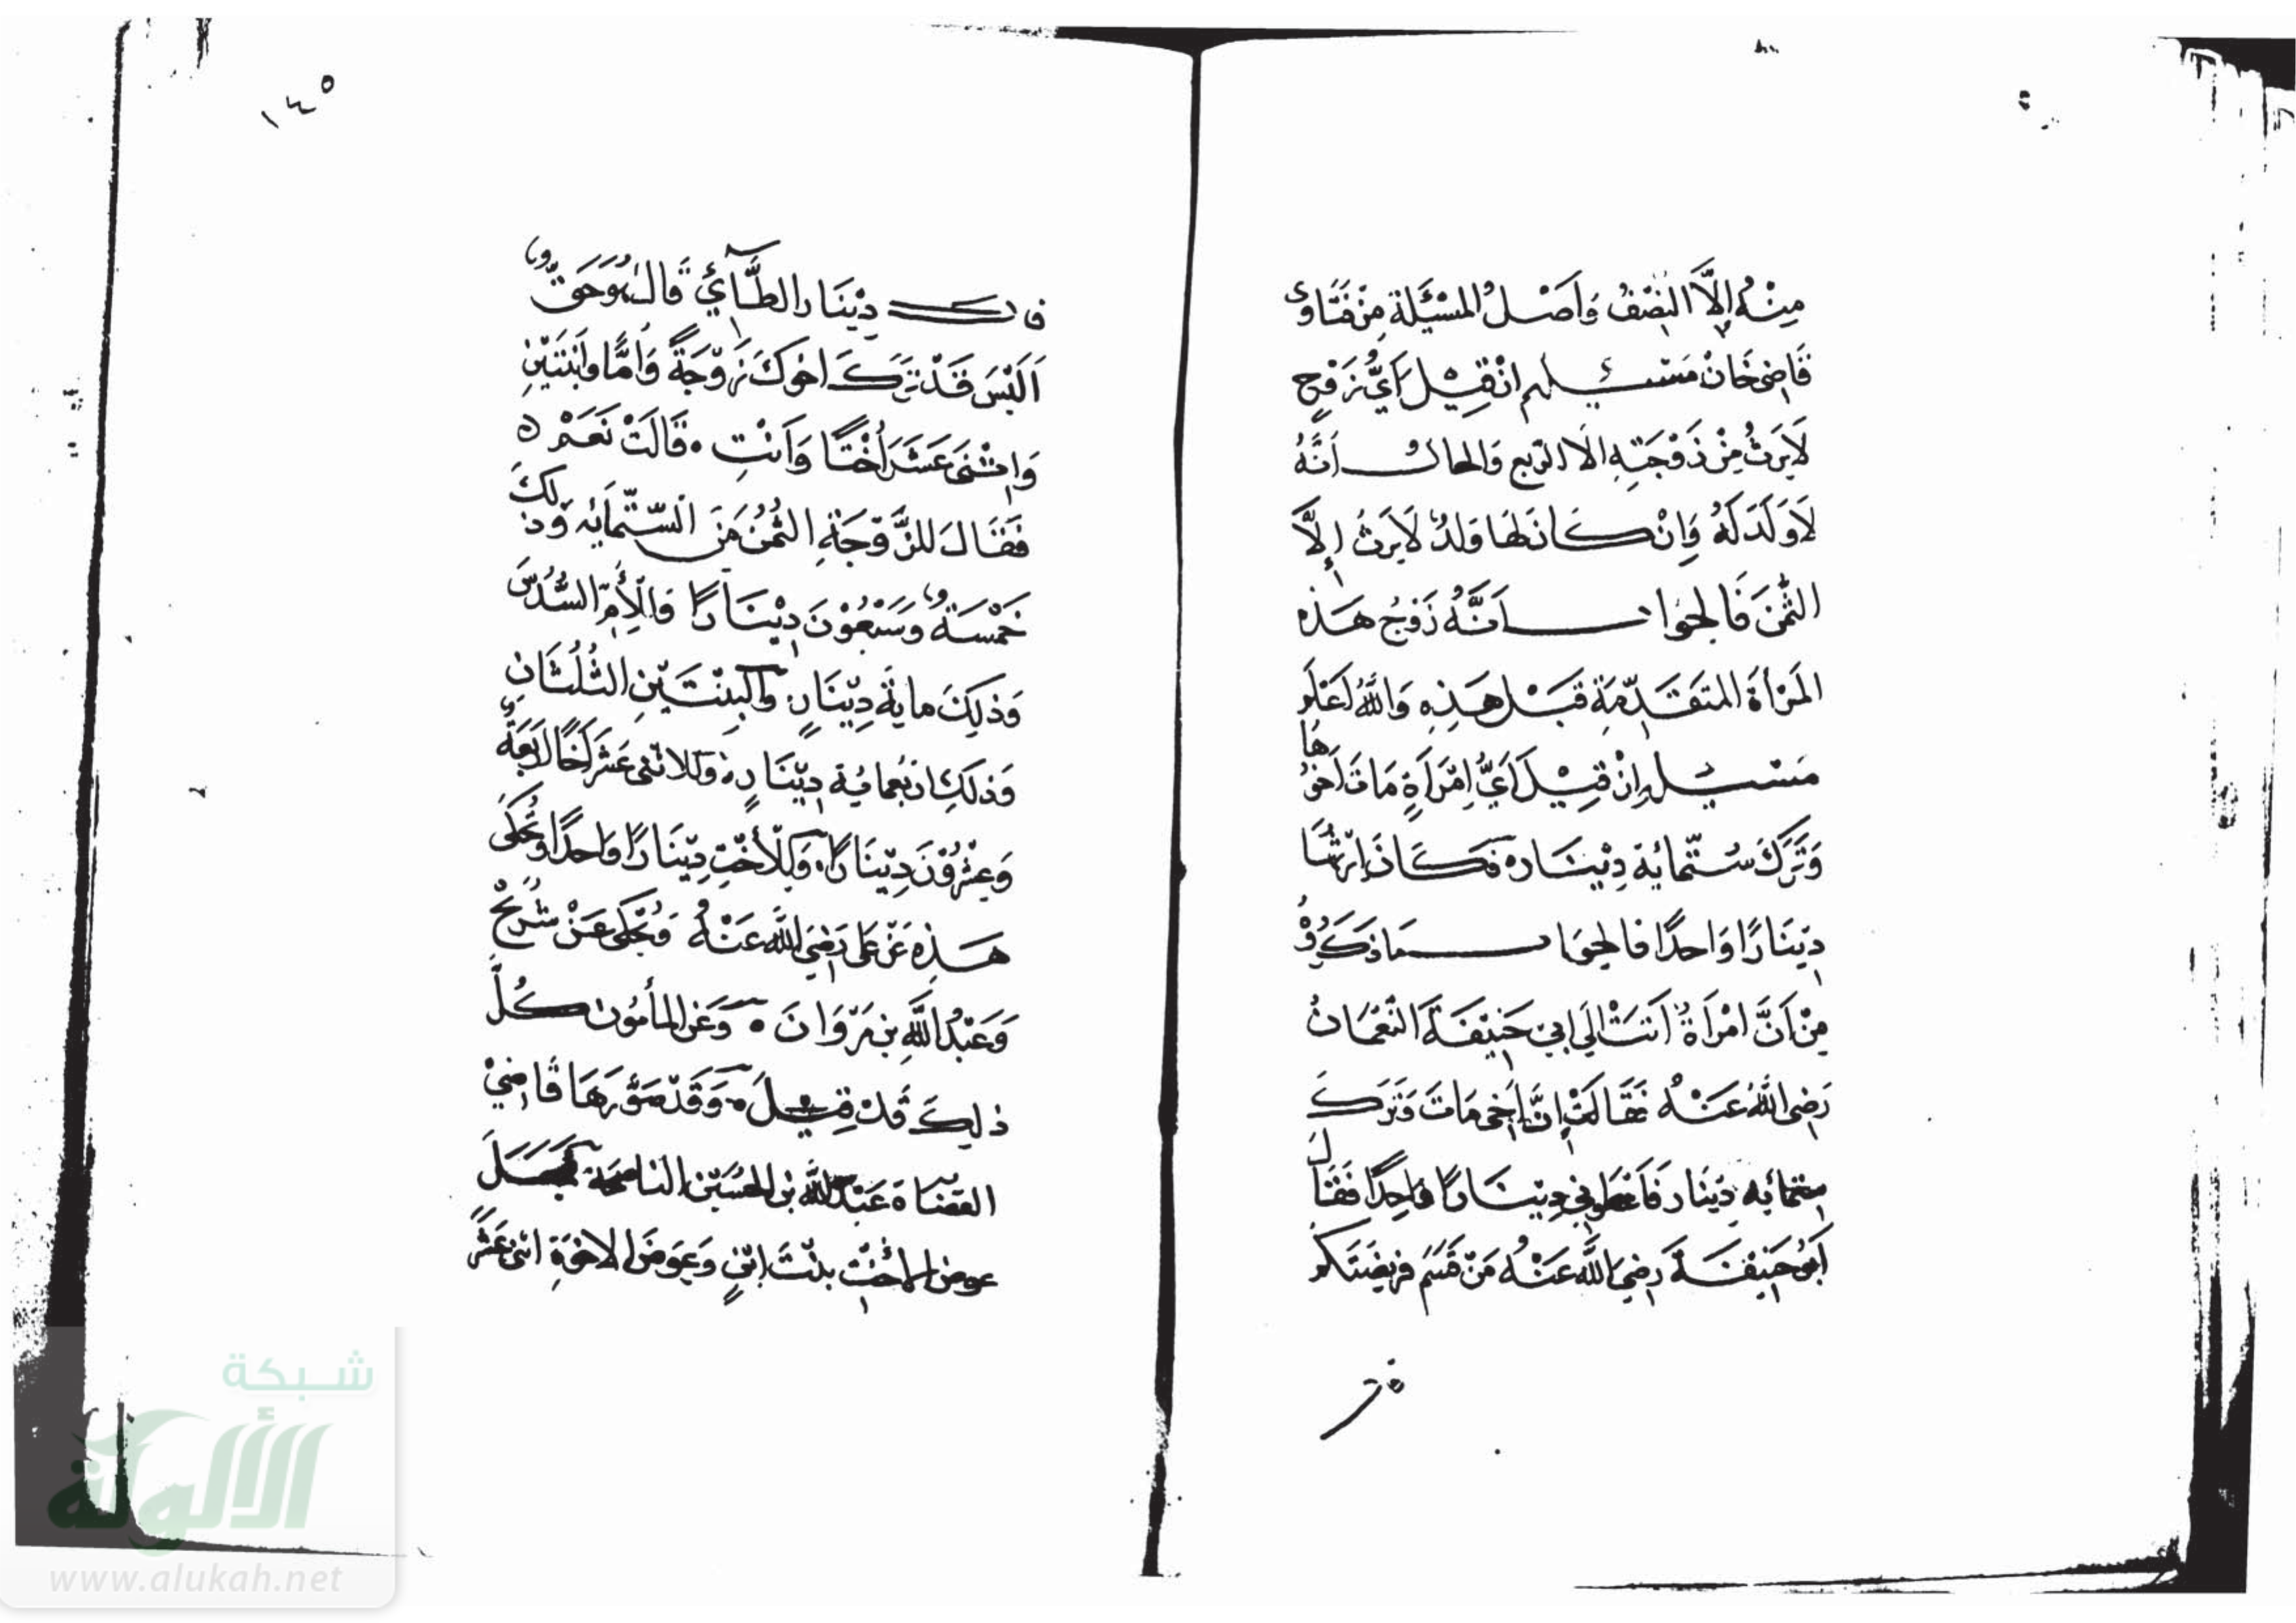 منه إلا النصف وأصل المسئلة من فتاوى
قاضي خان مسئله ان قيل أي زوج
لا يرث من زوجته الا الربع والحال أنه
لا ولد له وان كان لها ولد لا يرث إلا
الثمن فالجواب أنه زوج هذه
المرأة المتقدمة قبل هذه والله أعلم
مسئله إن قيل أي امرأة مات أخوها
وترك ستمائة دينار فكان إرثها
دينارا واحدا فالجواب ما ذكر
من أن امرأة أتت إلى ابي حنيفة النعمان
رضي الله عنه فقالت إن أخي مات وترك
ستمائه دينار فأعطوني دينارا واحدا فقال
أبو حنيفة رضي الله عنه من قسم فريضتكم
١٤٥
قالت دينار الطائي قال هو حق
أليس قد ترك اخوك زوجة وأما وابنتين
واثنى عشر أختا وأنت قالت نعم
فقال للزوجة الثمن من الستمائه وذلك
خمسة وسبعون دينارا وللأم السدس
وذلك ماية دينار وللبنتين الثلثان
وذلك اربعماية دينار وللاثنى عشر أخا أربعة
وعشرون دينارا وللأخت دينارا واحدا وتحكى
هذه عن على رضي الله عنه وتحكى عن شريح
وعبد الله بن مروان وعن المأمون كل
ذلك قد قيل وقد صورها قاضي
القضاة عبد الله بن الحسين الناصحة فجعل
عوض الاخت بنت ابن وعوض الاخوة اثنى عشر
شبكة
الألوكة
www.alukah.net